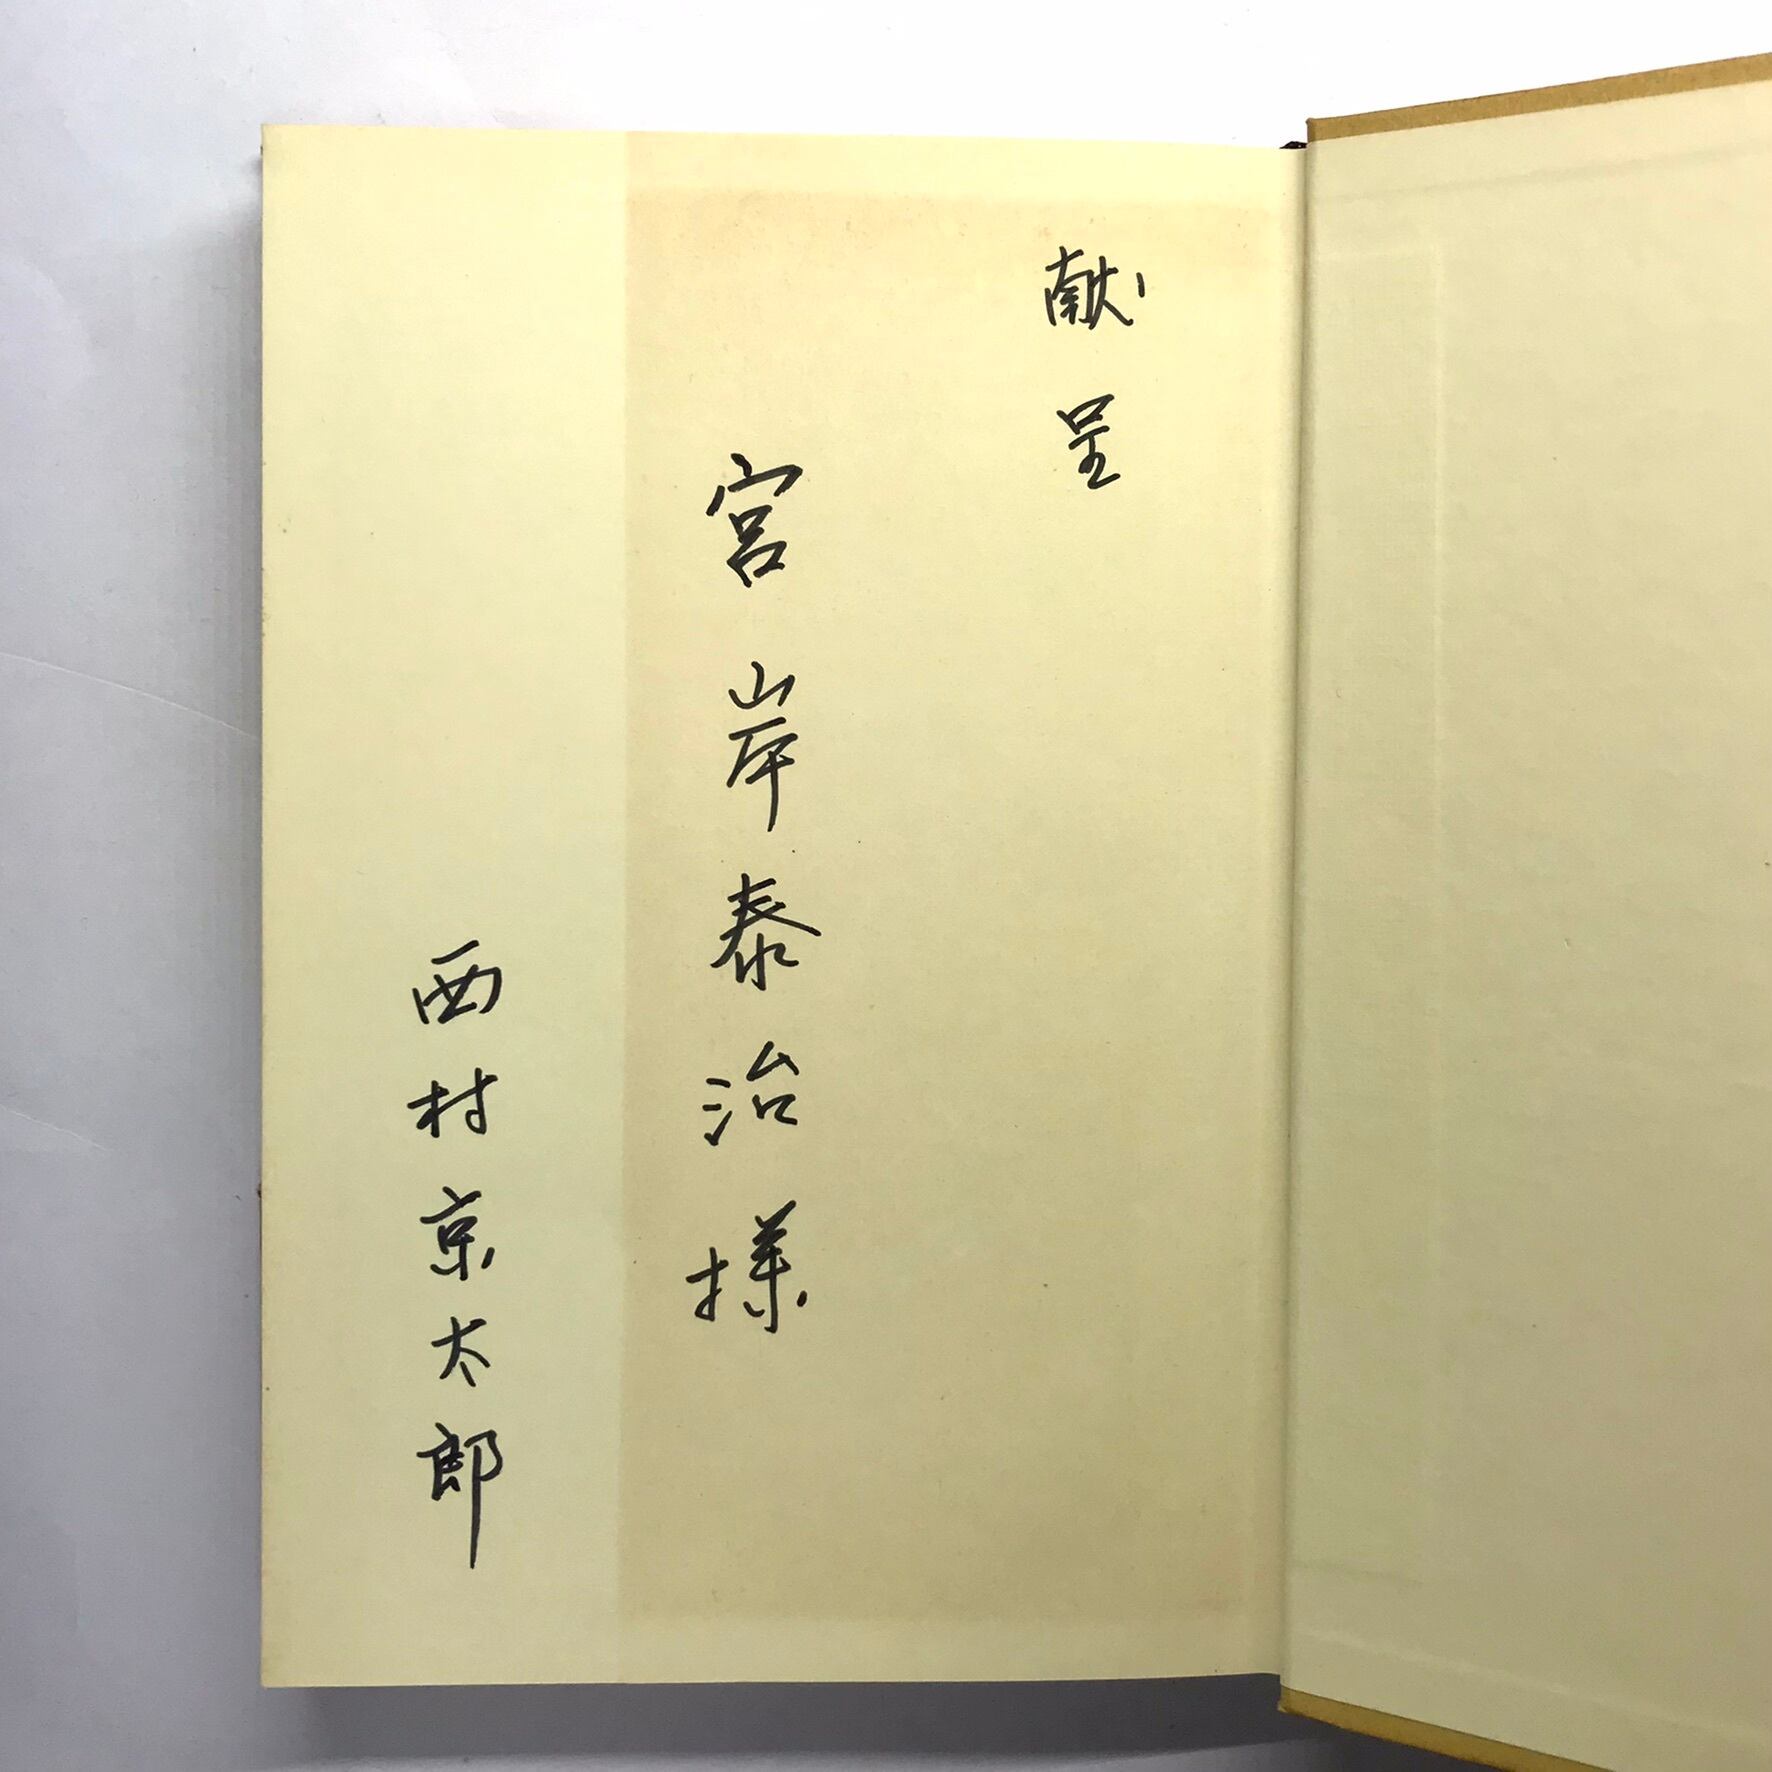 献呈
宮岸泰治様
西村京太郎